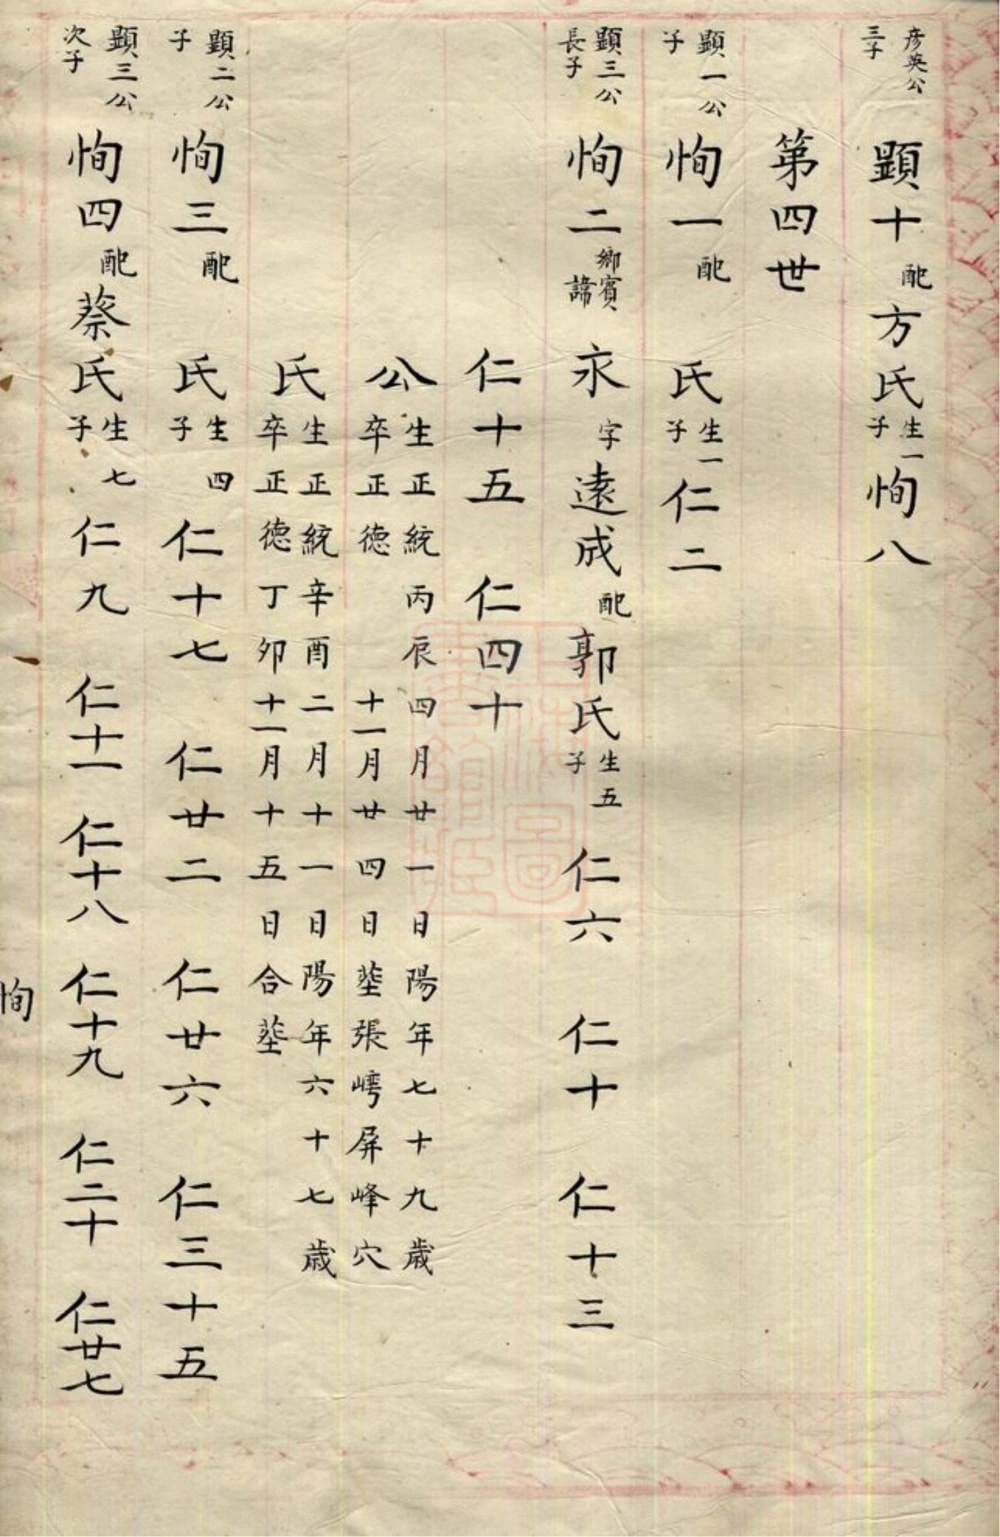 彥英公三子 顕十 配 方氏 生一子 恂八
第四世
顕一公子 恂一 配 氏 生一子 仁二
顕三公長子 恂二 鄉賓諱 永 字 遠成 配 郭氏 生五子 仁六 仁十 仁十三
仁十五 仁四十
公 生正統丙辰四月廿一日陽年七十九歲
卒正德 十一月廿四日塟張崿屏峰穴
氏 生正統辛酉二月十一日陽年六十七歲
卒正德丁卯十一月十五日合塟
顕二公子 恂三 配 氏 生四子 仁十七 仁廿二 仁廿六 仁三十五
顕三公次子 恂四 配 蔡氏 生七子 仁九 仁十一 仁十八 仁十九 仁二十 仁廿七
恂